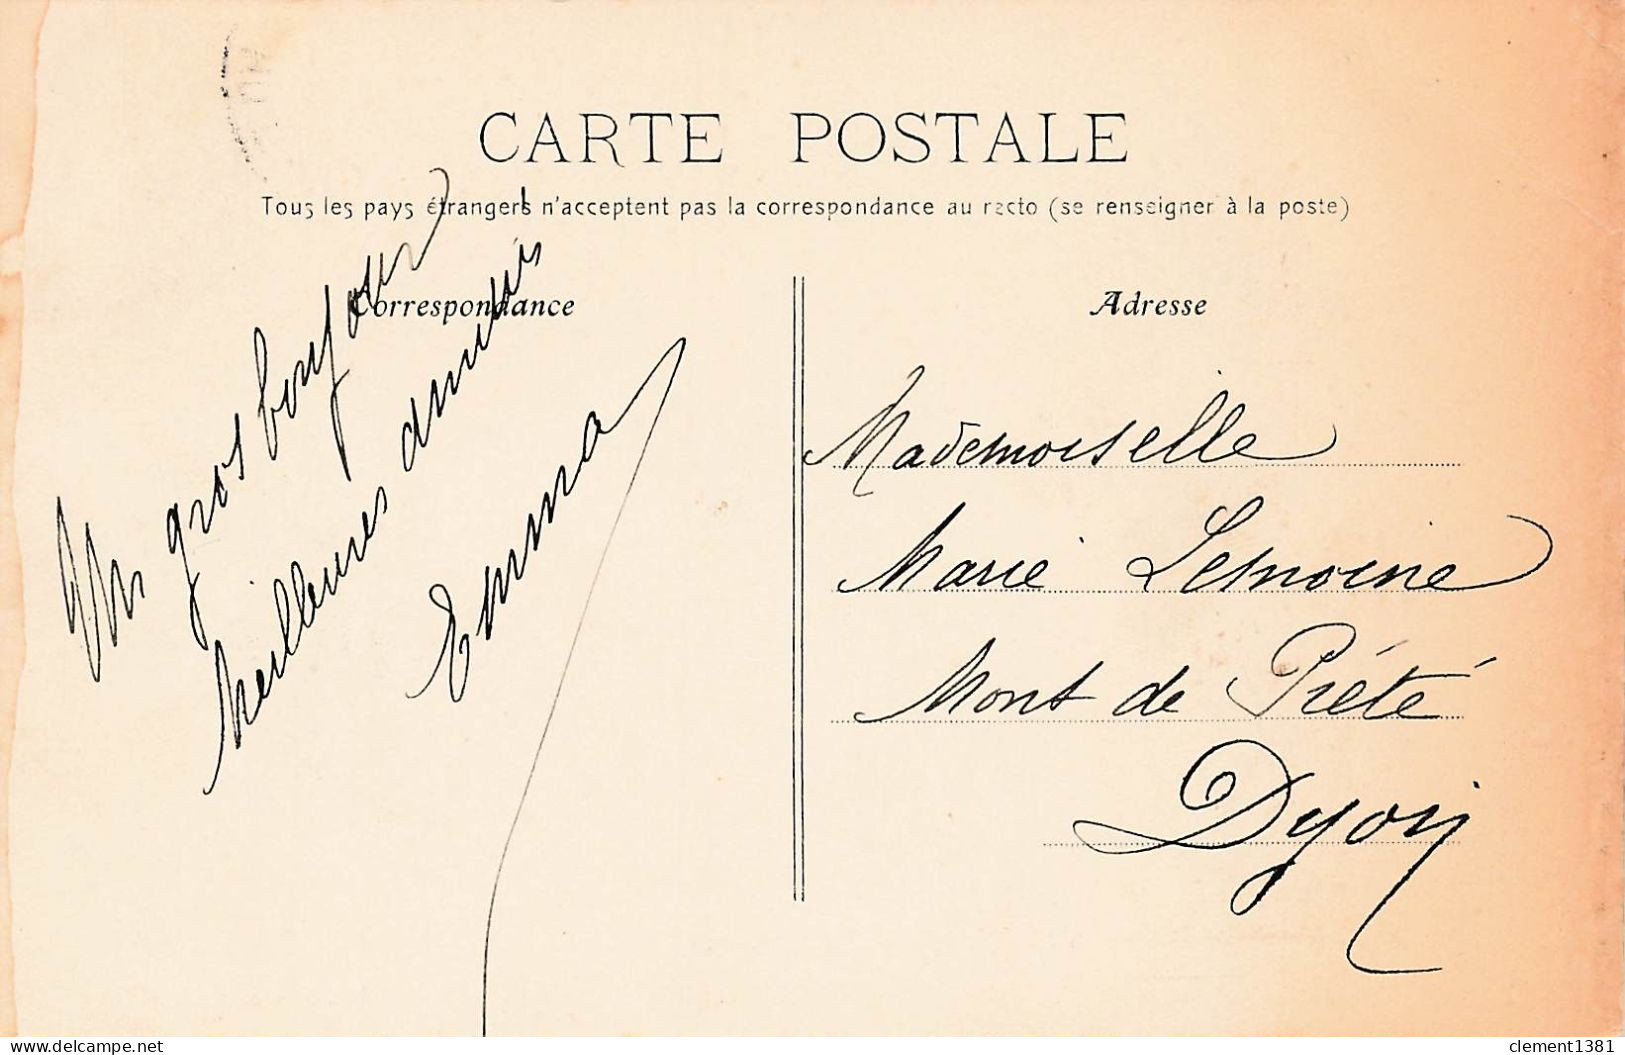 CARTE POSTALE
Tous les pays étrangers n'acceptent pas la correspondance au recto (se renseigner à la poste)
Correspondance
Un gros bonjour
Meilleures amitiés
Emma
Adresse
Mademoiselle
Marie Lemoine
Mont de Piété
Dyon
delcampe.net
clement1381